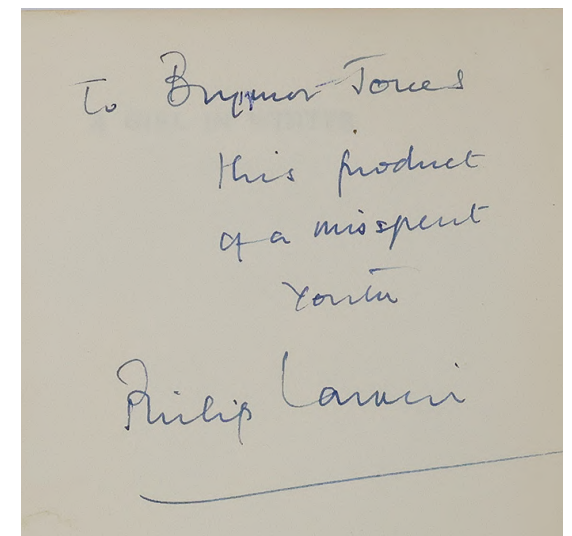 To Brynmor Jones
this product
of a misspent
Youth
Philip Larkin